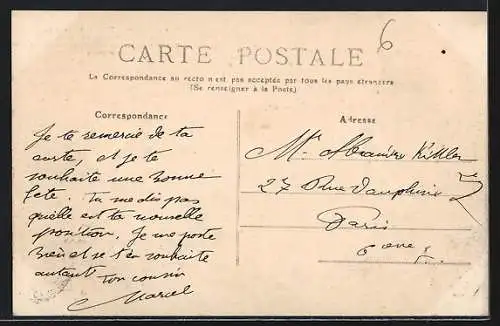 6
CARTE POSTALE
La Correspondance au recto n'est pas acceptée par tous les pays étrangers
(Se renseigner à la Poste)
Correspondance
Je te remercie de ta
carte, et je te
souhaite une bonne
fête. Tu me dis pas
quelle est ta nouvelle
position. Je me porte
bien et je t'en souhaite
autant ton cousin
Marcel
Adresse
Mr Alexandre
27 Rue Dauphine
Paris
6eme